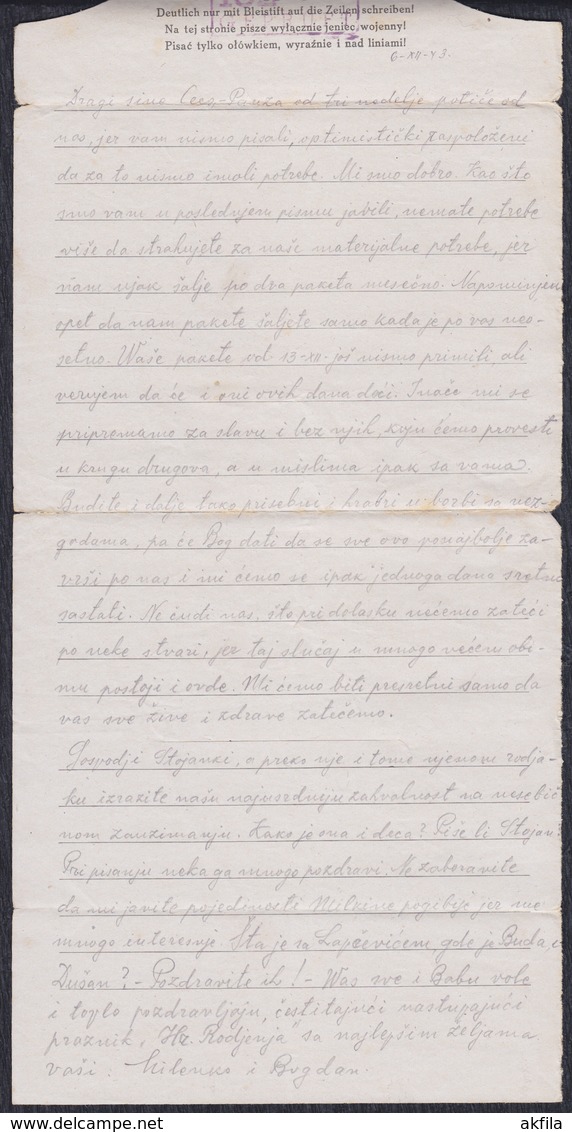 Deutlich nur mit Bleistift auf die Zeilen schreiben!
Na tej stronie pisze wyłącznie jeniec wojenny!
Pisać tylko ołówkiem, wyraźnie i nad liniami!
6-XII-43.
Dragi sine Ceso, Pauza od tri nedelje potiče od
nas, jer vam nismo pisali, optimistički raspoloženi
da za to nismo imali potrebe. Mi smo dobro. Kao što
smo vam u poslednjem pismu javili, nemate potrebe
više da strahujete za naše materijalne potrebe, jer
nam ujak šalje po dva paketa mesečno. Napominjem
opet da nam pakete šaljete samo kada je po vas neo-
setno. Waše pakete od 13-XII- još nismo primili, ali
verujem da će i oni ovih dana doći. Inače mi se
pripremamo za slavu i bez njih, koju ćemo provesti
u krugu drugova, a u mislima ipak sa vama.
Budite i dalje tako prisebni i hrabri u borbi sa nez-
godama, pa će Bog dati da se sve ovo ponajbolje za-
vrši po nas i mi ćemo se ipak jednoga dana sretno
sastati. Ne čudi nas, što pri dolasku nećemo zateći
po neke stvari, jer taj slučaj u mnogo većem obi-
mu postoji i ovde. Mi ćemo biti presretni samo da
vas sve žive i zdrave zatečemo.
Gospodji Stojanki, a preko nje i tome njenom rodja-
ku izrazite našu najusrdniju zahvalnost na nesebič
nom zauzimanju. Kako je ona i deca? Piše li Stojan?
Pri pisanju neka ga mnogo pozdravi. Ne zaboravite
da mi javite pojedinosti Milkine pogibije jer me
mnogo interesuje. Šta je sa Lapčevićem, gde je Buda, i
Dušan? - Pozdravite ih! - Was sve i Babu vole
i toplo pozdravljaju, čestitajući nastupajući
praznik „Hr. Rodjenja" sa najlepšim željama
vaši: Milenko i Bogdan.